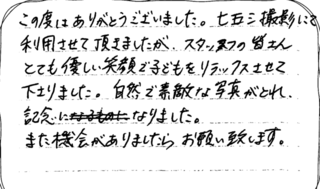 この度はありがとうございました。七五三撮影にて
利用させて頂きましたが、スタッフの皆さん
とても優しい笑顔で子どもをリラックスさせて
下さりました。自然で素敵な写真がとれ、
記念になりました。
また機会がありましたら、お願い致します。